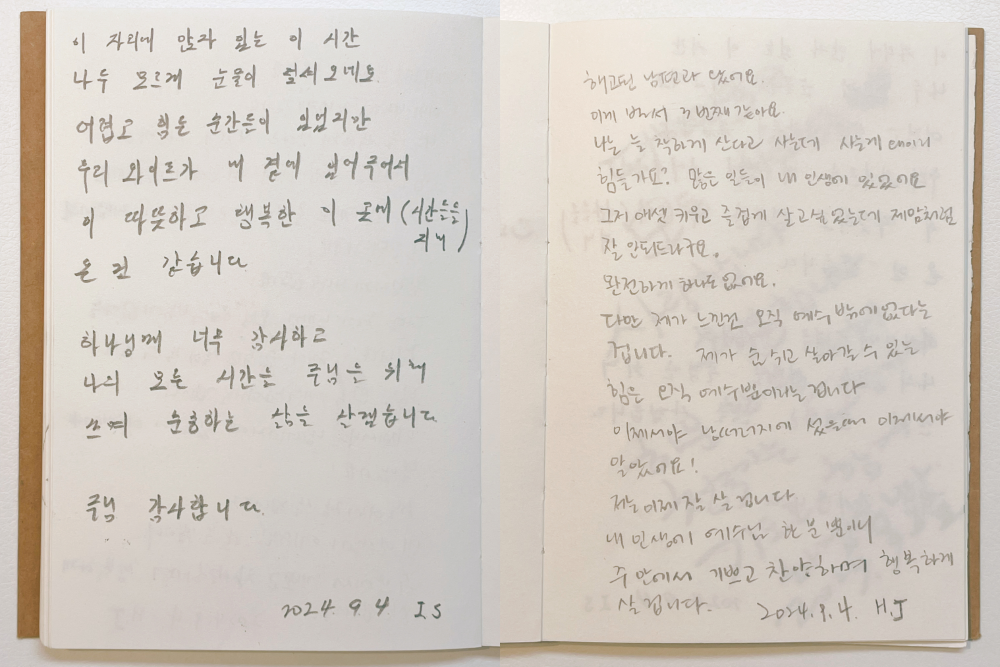 이 자리에 앉자 있는 이 시간
나두 모르게 눈물이 오네요
어렵고 힘든 순간들이 있었지만
우리 와이프가 내 곁에 있어주어서
이 따뜻하고 행복한 이 곳에 (시간들을
지나)
온 것 같습니다
하나님께 너무 감사하고
나의 모든 시간을 주님을 위해
쓰며 순종하는 삶을 살겠습니다
주님 감사합니다.
2024. 9. 4 I S
해고된 남편과 왔어요.
이제 벌써 번째 같아요.
나는 늘 착하게 산다고 사는데 사는게 왜이리
힘들가요? 많은 일들이 내 인생에 있었어요
그저 애셋 키우고 즐겁게 살고싶었는데 제맘처럼
잘 안되드라구요.
완전하게 하나도 없어요.
다만 제가 느낀건 오직 예수밖에 없다는
겁니다. 제가 숨쉬고 살아갈 수 있는
힘은 오직 예수뿐이라는겁니다
이제서야 낭떠러지에 섰을때 이제서야
알았어요!
저는 이제 잘 살 겁니다
내 인생에 예수님 한 분 뿐이니
주 안에서 기쁘고 찬양하며 행복하게
살 겁니다. 2024. 9. 4. H.J